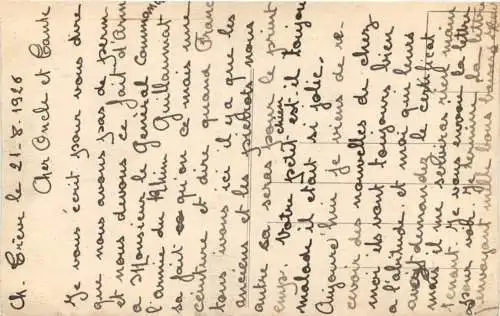 Ch. Trèves le 21-8-1926
Cher Oncle et Tante
Je vous écrit pour vous dire
que nous avons pas de perm
et nous devons ce fait d'arm
a Monsieur le General Commandant
l'armée du Rhin Guillaumat
sa fait qu'on ce mais une
ceinture et dire quand France
tous vons ici il y a que les
anciens et les pieds nous
autre sa seras pour le print
emp. Votre petit chien est il toujour
malade il etait si jolie.
Aujourd'hui je viens de re-
cevoir des nouvelles de chez
moi ils vont toujours bien
a l'abitude et moi qui leurs
avait demander le certificat
mais il me serviras rien main
tenant. Je vous envoi la lettre
pour voir. Je termine la lettre
envoyant mille bons baisers